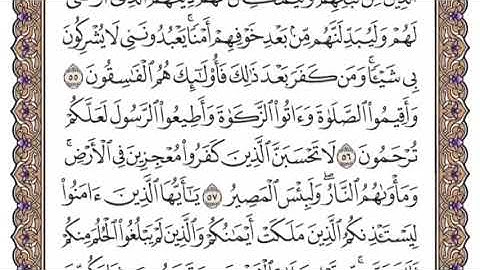 لَهُمْ وَلَيُبَدِّلَنَّهُم مِّنۢ بَعْدِ خَوْفِهِمْ أَمْنًا ۚ يَعْبُدُونَنِي لَا يُشْرِكُونَ
بِي شَيْـًٔا ۚ وَمَن كَفَرَ بَعْدَ ذَٰلِكَ فَأُو۟لَـٰٓئِكَ هُمُ ٱلْفَـٰسِقُونَ ٥٥
وَأَقِيمُوا۟ ٱلصَّلَوٰةَ وَءَاتُوا۟ ٱلزَّكَوٰةَ وَأَطِيعُوا۟ ٱلرَّسُولَ لَعَلَّكُمْ
تُرْحَمُونَ ٥٦ لَا تَحْسَبَنَّ ٱلَّذِينَ كَفَرُوا۟ مُعْجِزِينَ فِي ٱلْأَرْضِ ۚ
وَمَأْوَىٰهُمُ ٱلنَّارُ ۖ وَلَبِئْسَ ٱلْمَصِيرُ ٥٧ يَـٰٓأَيُّهَا ٱلَّذِينَ ءَامَنُوا۟
لِيَسْتَـْٔذِنكُمُ ٱلَّذِينَ مَلَكَتْ أَيْمَـٰنُكُمْ وَٱلَّذِينَ لَمْ يَبْلُغُوا۟ ٱلْحُلُمَ مِنكُمْ